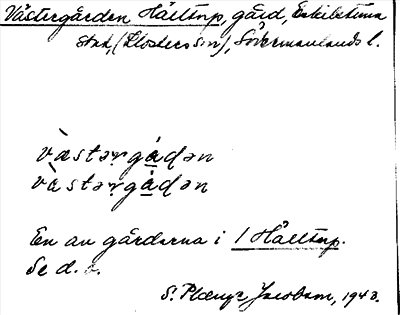 Västergården Hälltorp, gård, Eskilstuna
stad, (Klosters sn), Södermanlands l.
væstərgɑ̀dən
và̀stərgɑ̀dən
En av gårdarna i 1 Hälltorp.
Se d. o.
S: 1943.